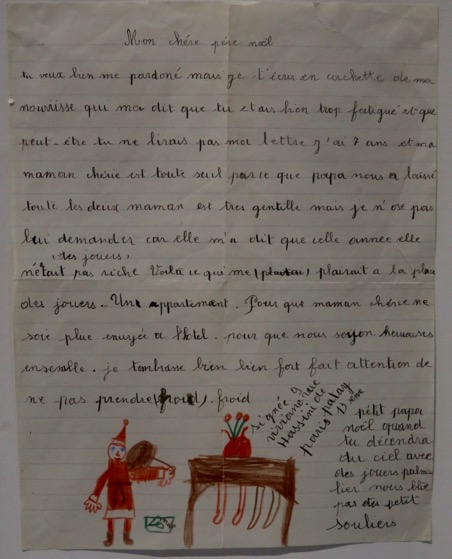 Mon chére pére noël
tu veux bien me pardoné mais je t'écris en cachette de ma
nourisse qui ma dit que tu étais bien trop fatigué et que
peut-être tu ne lirais pas ma lettre j'ai 7 ans et ma
maman chérie est toute seul parce que papa nous a laissé
toute les deux maman est tres gentille mais je n'ose pas
lui demander car elle m'a dit que cette année elle
(des jouers)
n'était pas riche Voila ce qui me plairait a la place
des jouers. Un appartement. Pour que maman chére ne
soie plue ennuyée a l'hotel. pour que nous soyon heureuses
ensemble. je t'embrasse bien bien fort fait attention de
ne pas prendre (froid), froid
signée
viviane
Hassini de
paris
13 ème
pétit papa
noël quand
tu décendra
du ciel avec
des jouers par mi
lier nous blie
pas des petit
souliers